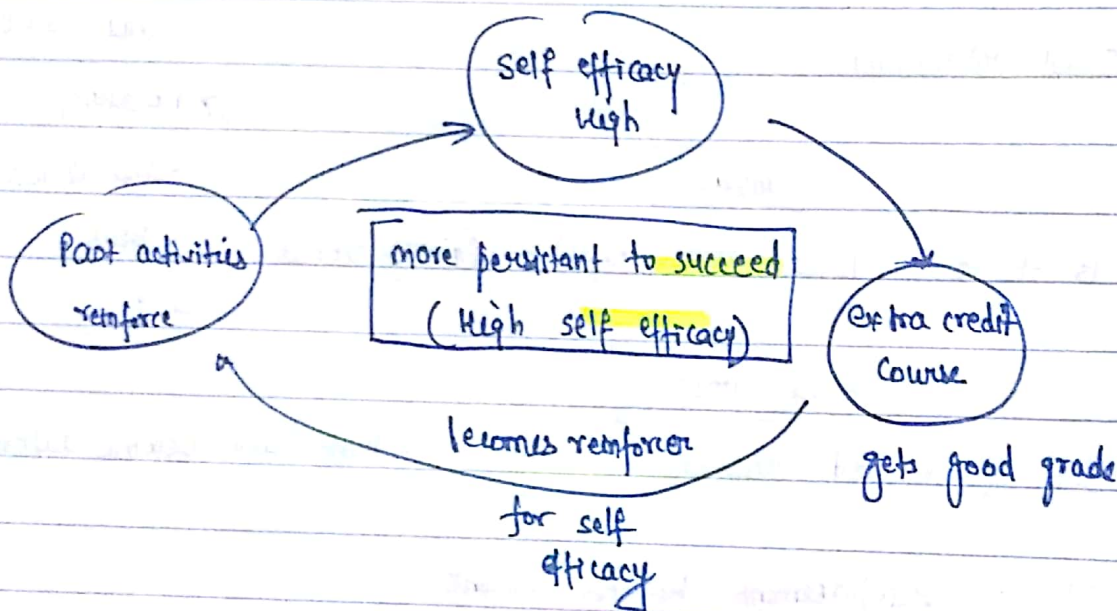 self efficacy
High
Past activities
reinforce
more persistant to succeed
(High self efficacy)
extra credit
Course
gets good grade
becomes reinforcer
for self
efficacy